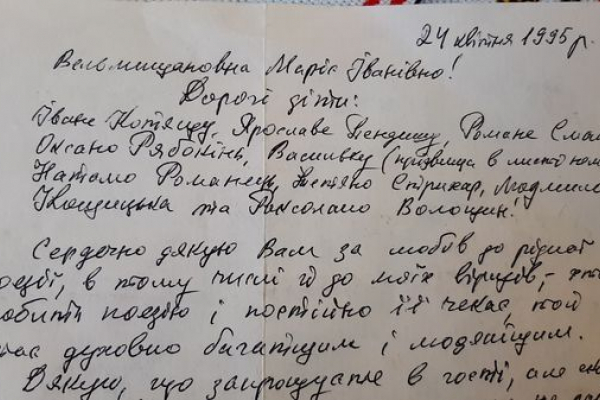 24 квітня 1995 р.
Вельмишановна Маріє Іванівно!
Дорогі діти:
Іване Котяшу, Ярославе Бендищу, Романе
Оксано Рябокінь, Васильку (прізвища в листі нема
Наталю Романець, Тетяно Стрихар, Людмило
Квщицька та Роксолано Волощин!
Сердечно дякую Вам за любов до рідної
поезії, в тому числі й до моїх віршів, – хто
любить поезію і постійно її чекає, той
стає духовно багатшим і людянішим.
Дякую, що запрошуєте в гості, але